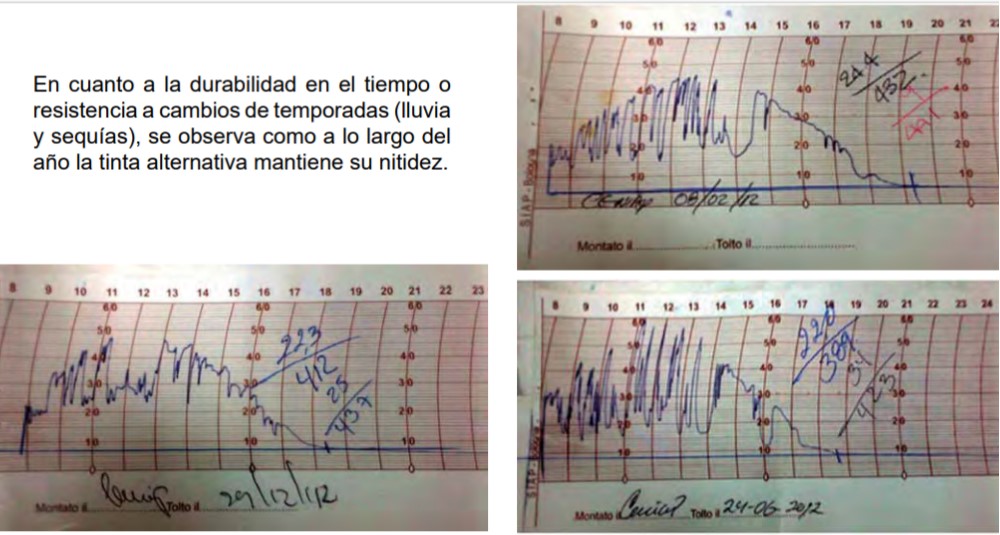 En cuanto a la durabilidad en el tiempo o
resistencia a cambios de temporadas (lluvia
y sequías), se observa como a lo largo del
año la tinta alternativa mantiene su nitidez.
8 9 10 11 12 13 14 15 16 17 18 19 20 21 22
60 60 60
50 50 50
40 40 40
30 30 30
20 20 20
10 10 10
0 0
244
432
08/02/12
SIAP - Bologna
Montato il Tolto il
8 9 10 11 12 13 14 15 16 17 18 19 20 21 22 23
60 60 60
50 50 50
40 40 40
30 30 30
20 20 20
10 10 10
0 0 0
22,3
412
25
437
Montato il Tolto il 29/12/12
8 9 10 11 12 13 14 15 16 17 18 19 20 21 22 23 24
60 60 60
50 50
40 40
30 30 30
20 20 20
10 10 10
0 0 0
22,0
389
423
SIAP - Bologna
Montato il Tolto il 24-06-2012